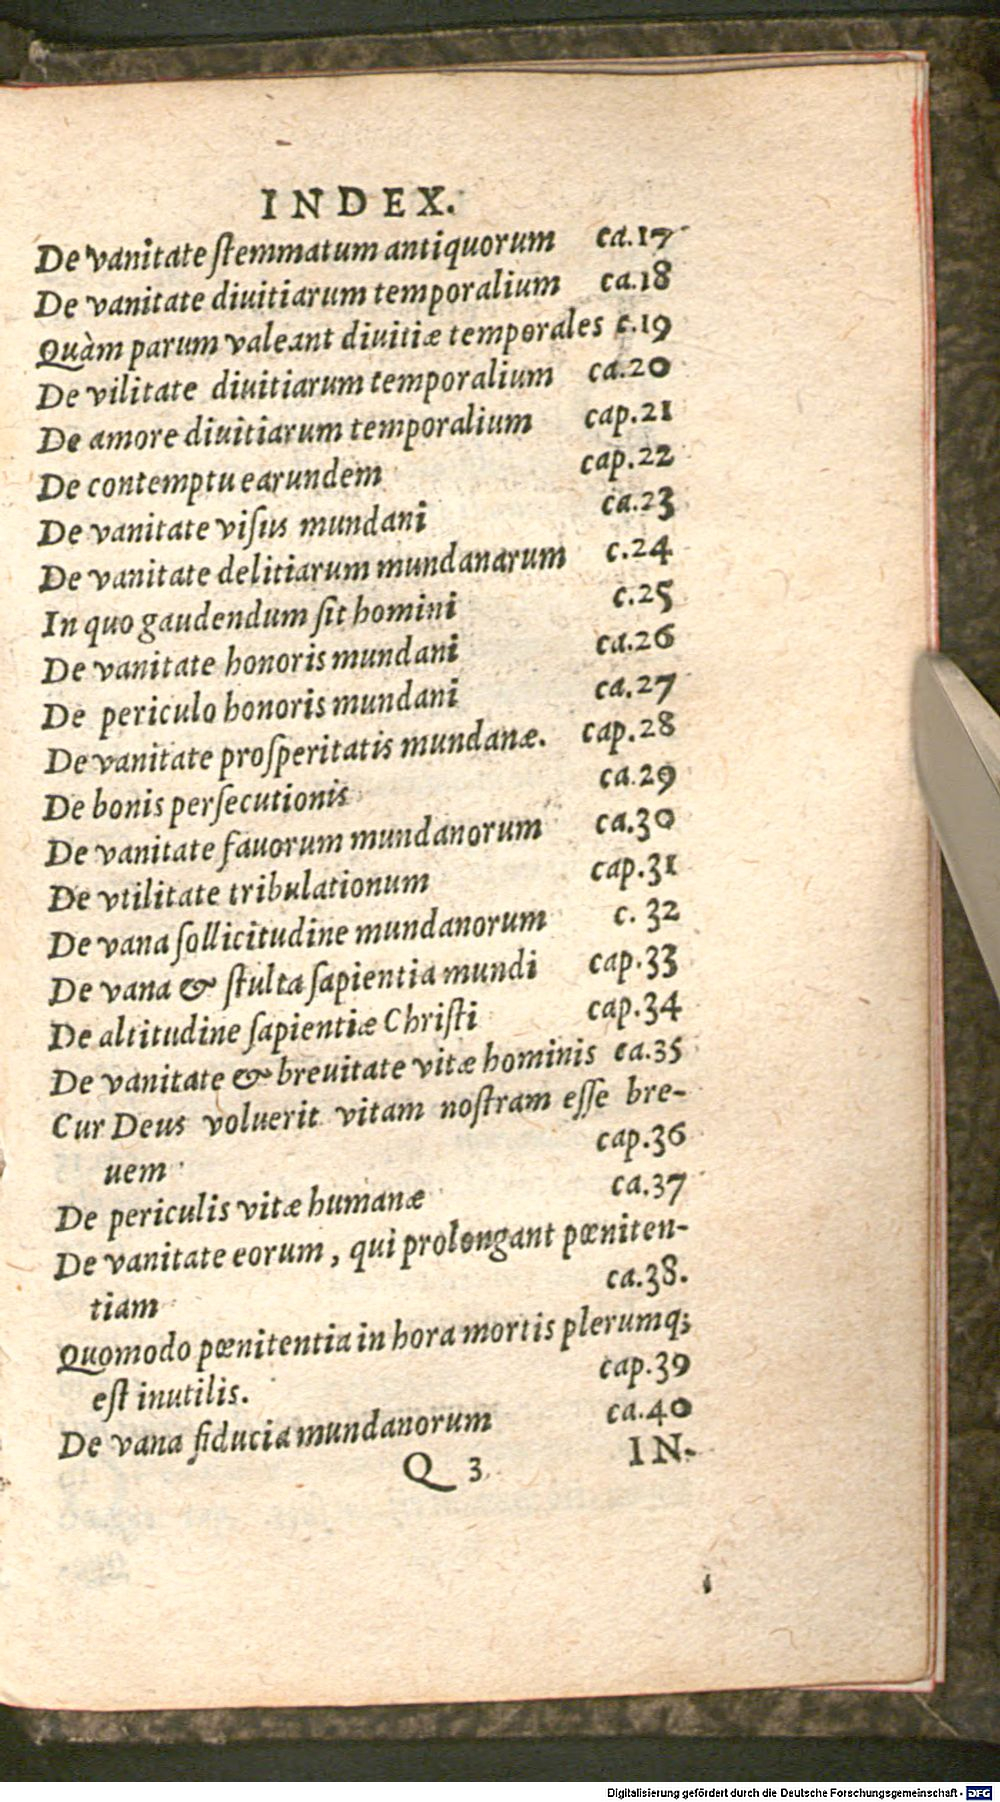 INDEX.
De vanitate ſtemmatum antiquorum ca.17
De vanitate diuitiarum temporalium ca.18
Quàm parum valeant diuitiæ temporales c.19
De vilitate diuitiarum temporalium ca.20
De amore diuitiarum temporalium cap.21
De contemptu earundem cap.22
De vanitate viſus mundani ca.23
De vanitate delitiarum mundanarum c.24
In quo gaudendum ſit homini c.25
De vanitate honoris mundani ca.26
De periculo honoris mundani ca.27
De vanitate proſperitatis mundanæ. cap.28
De bonis perſecutionis ca.29
De vanitate fauorum mundanorum ca.30
De vtilitate tribulationum cap.31
De vana ſollicitudine mundanorum c. 32
De vana & ſtulta ſapientia mundi cap.33
De altitudine ſapientiæ Chriſti cap.34
De vanitate & breuitate vitæ hominis ca.35
Cur Deus voluerit vitam noſtram eſſe bre-
uem cap.36
De periculis vitæ humanæ ca.37
De vanitate eorum, qui prolongant pœniten-
tiam ca.38.
Quomodo pœnitentia in hora mortis plerumq;
eſt inutilis. cap.39
De vana fiducia mundanorum ca.40
Q 3 IN-
Digitalisierung gefördert durch die Deutsche Forschungsgemeinschaft - DFG